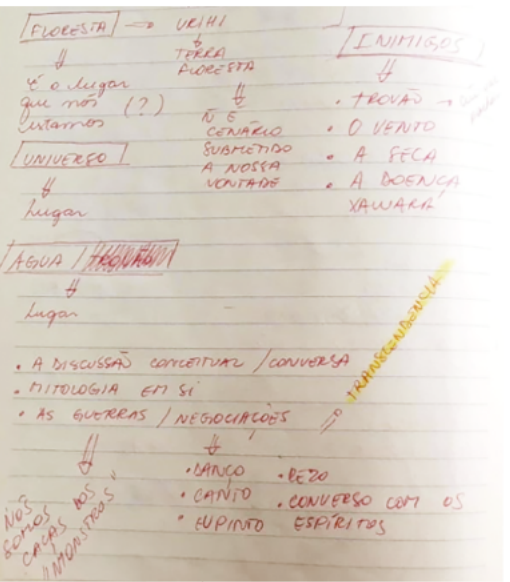 FLORESTA → URIHI
↓
TERRA
FLORESTA
⇓
É o lugar
que nós (?)
estamos
⇓
Ñ É
CENÁRIO
SUBMETIDO
A NOSSA
VONTADE
INIMIGOS
⇓
• TROVÃO →
• O VENTO
• A SECA
• A DOENÇA
XAWARA
UNIVERSO
⇓
Lugar
ÁGUA /
⇓
Lugar
TRANSCENDÊNCIA
• A DISCUSSÃO CONCEITUAL / CONVERSA
• MITOLOGIA EM SI
• AS GUERRAS / NEGOCIAÇÕES
⇓
NÓS
SOMOS
CAÇAS DOS
"MONSTROS"
⇓
• DANÇO • REZO
• CANTO • CONVERSO COM OS
• EU PINTO ESPÍRITOS